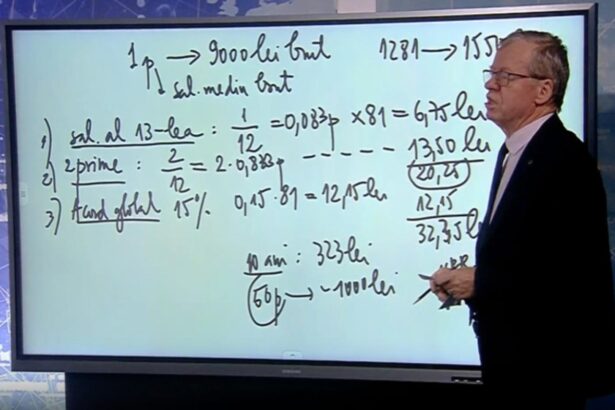 1p → 9000 lei brut 1281 → 155
sal. mediu brut
1) sal. al 13-lea : 1/12 = 0,083p × 81 = 6,75 lei
2) 2 prime : 2/12 = 2 · 0,833p ----- 13,50 lei
20,25
3) Acord global 15% 0,15 · 81 = 12,15 lei 12,15
32,35 l
10 ani : 323 lei
56p → ~1000 lei
SAMSUNG